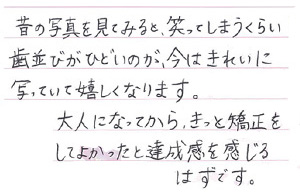 昔の写真を見てみると、笑ってしまうくらい
歯並びがひどいのが、今はきれいに
写っていて嬉しくなります。
大人になってから、きっと矯正を
してよかったと達成感を感じる
はずです。